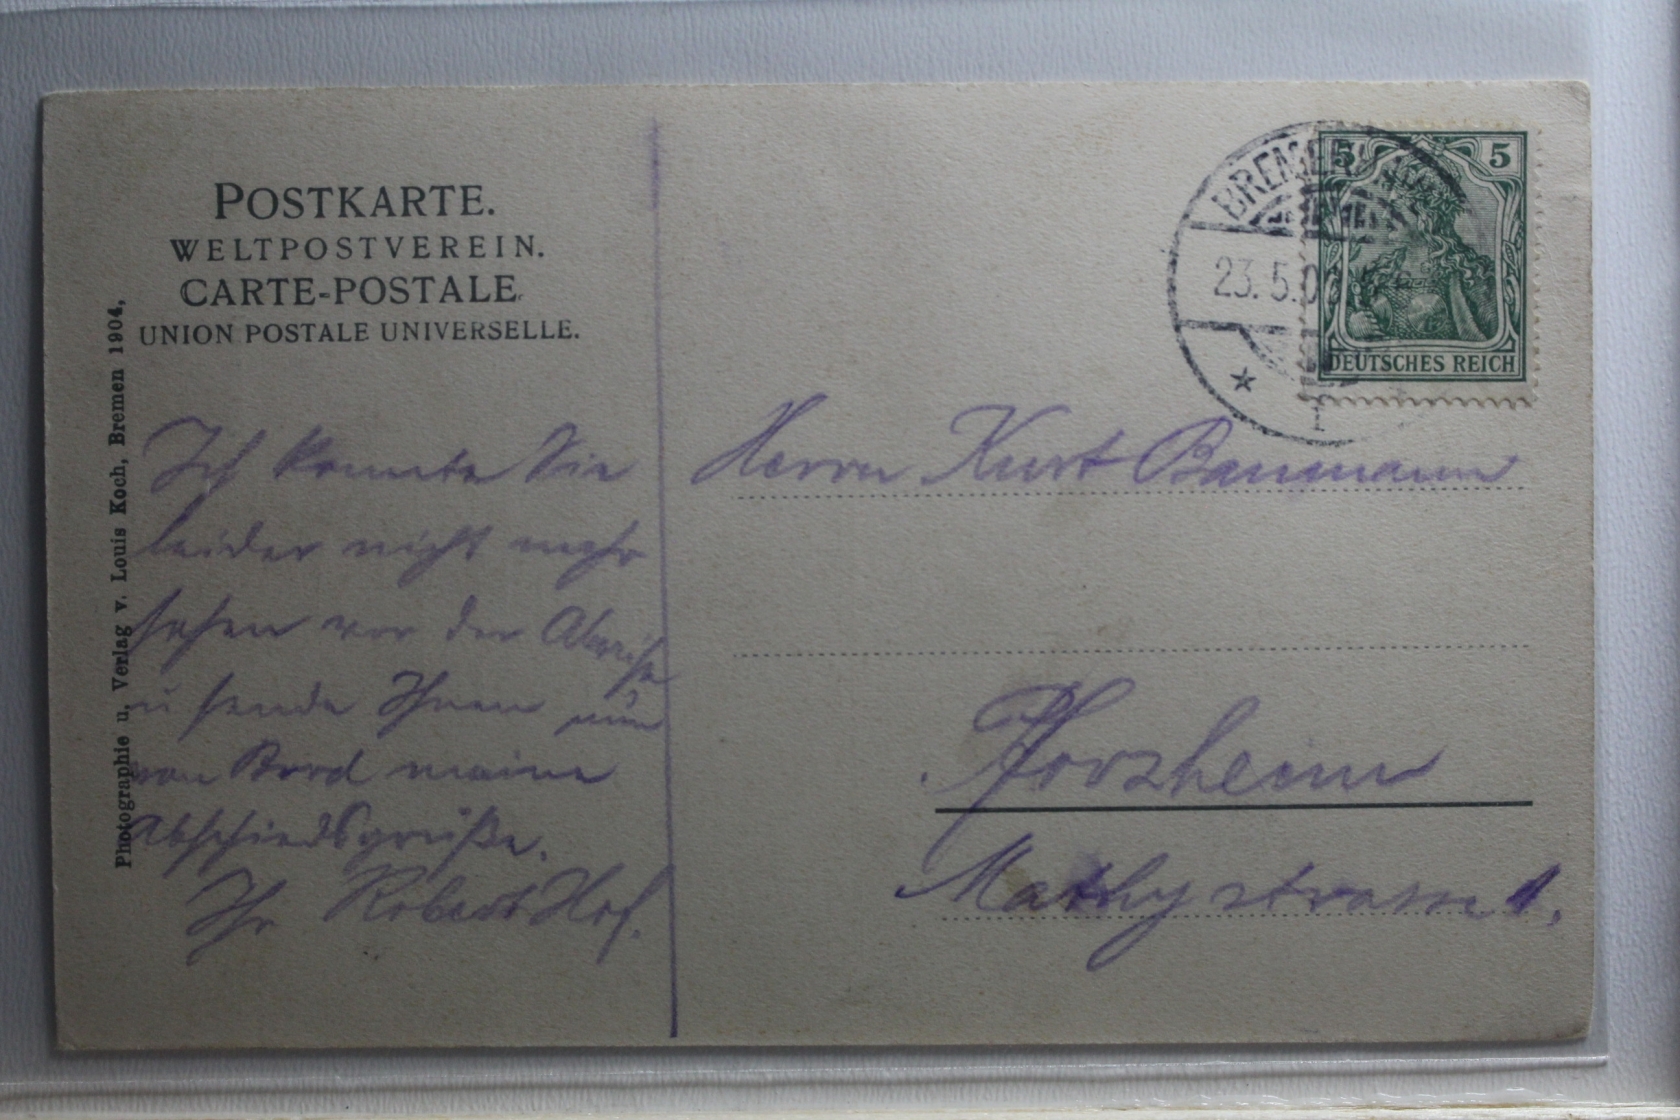 POSTKARTE.
WELTPOSTVEREIN.
CARTE-POSTALE.
UNION POSTALE UNIVERSELLE.
Photographie u. Verlag v. Louis Koch, Bremen 1904.
Ich konnte Sie
leider nicht mehr
sehen vor der Abreise
u sende Ihnen nun
von Bord meine
Abschiedsgrüße.
Ihr Robert Hof.
BREMEN
23. 5. 0
5 5
DEUTSCHES REICH
Herrn Kurt Baumann
Pforzheim
Mathystrasse 1.